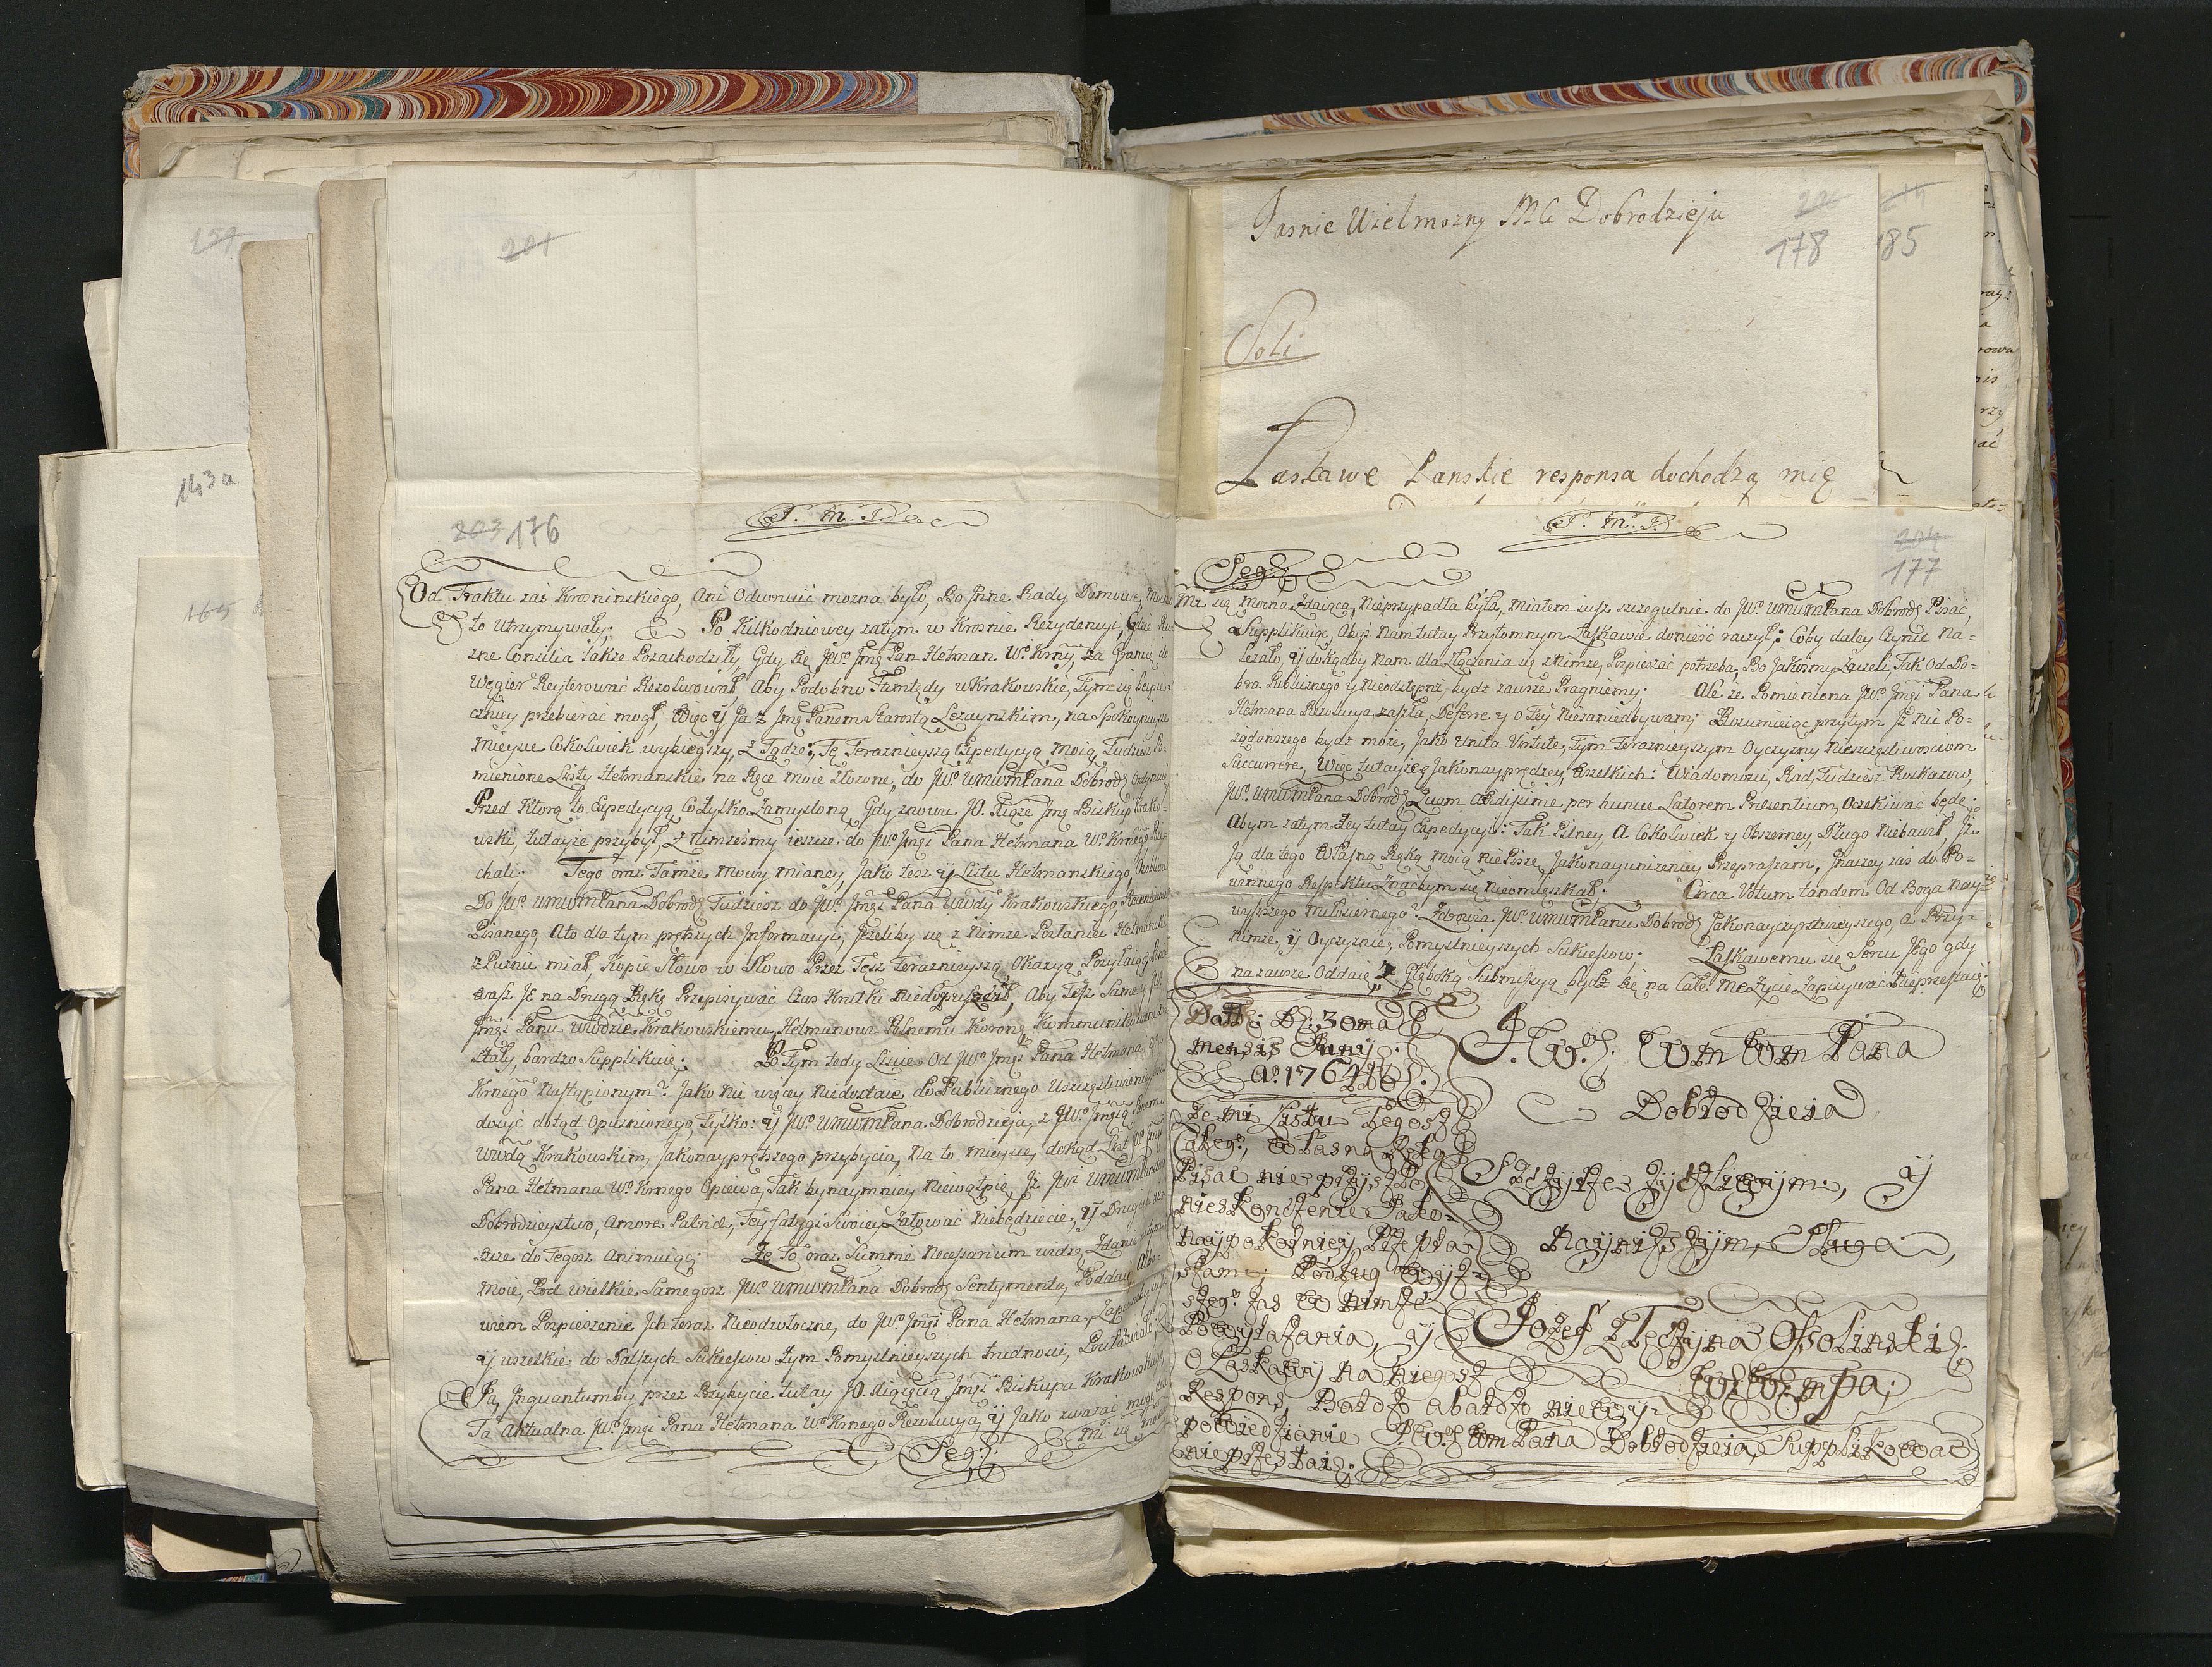 159
201
143a
165
203 176
J. M. J.
Od Traktu zaś Krosninskiego, Ani Odwrucić mozna było, Bo Inne Rady Domowe, Mocno
to Utrzymywały; Po Kilkodniowey zatym w Krosnie Rezydencyi, Gdzie
zne Consilia także Pozachodziły, Gdy się JWo. Jmg Pan Hetman Wo. Krny, za Granicę do
Węgier Reyterować Rezolwował, Aby Podobno Tamtędy w Krakowskie, Tym się bezpie-
czniey przebierać mogł, Więc y Ja z Jmg Panem Starostą Lezaynskim, na Spokoynieysze
Mieysce Cokolwiek wybiegszy, z Tądże: Tę Teraznieyszą Expedycyą Moią, Tudziesz Po-
mienione Listy Hetmanskie na Ręce Moie złozone, do JWo. WMWMPana Dobrodz Ordynuię
Przed Ktorą to Expedycyą Co Tylko Zamysloną, Gdy znowu JO. Xiąze Jmg Biskup Krako-
wski, Tutayże przybył, z Nimżesmy ieszcze do JWo. Jmgi Pana Hetmana Wo. Krnego
chali. Tego oraz Tamże Mowy Mianey, Jako tesz y Listu Hetmanskiego,
Do JWo. WMWMPana Dobrodz Tudziesz do JWo. Jmgi Pana Wwdy Krakowskiego,
Pisanego, A to dla tym prętszych Informacyi, Jezeliby się z Nimże Posłaniec Hetmanski
z Puznic miał, Kopie Słowo w Słowo Przez Tęsz Teraznieyszą Okazyą Posyłaiąc,
wasz Je na Drugą Rękę Przepisywać Czas Krutki Niedopuscił, Aby Tesz Samey
Jmgi Panu Wwdzie Krakowskiemu Hetmanowi Polnemu Koronę Kommunikowane
stały, bardzo Supplikuię; Po tym tedy Liscie Od JWo. Jmgi Pana Hetmana
Krnego Nastąpionym? Jako Nic więcey Niedostaie do Publicznego Uszczęsliwienia
dosyć dotąd Opuznionego, Tylko: y JWo. WMWMPana Dobrodzieja, z JWo. Jmgią Panem
Wwdą Krakowskim, Jakonayprętszego przybycia, Na to Mieysce, dokąd List JWo. Jmgi
Pana Hetmana Wo. Krnego Opiewa, Tak bynaymniey Niewątpię, Iż Już WMWMPanstwo
Dobrodzieystwo, Amore Patriæ, Tey Fatygi Swoiey Załować Niebędziecie, y Drugich
scze do Tegosz Animuiąc; Że to oraz Summe Necessarium widzę, Zdanie
Moie, Pod wielkie Samegosz JWo. WMWMPana Dobrodz Sentymenta, Poddaię, Albo-
wiem Pospieszenie Ich teraz Nieodwłoczne, do JWo. Jmgi Pana Hetmana,
y wszelkie do Dalszych Sukcessow tym Pomyslnieyszych trudnosci, Poułatwiało;
Ja, Inquantumby przez Przybycie tutay JO. Xiązęcia Jmgi Biskupa Krakowskiego,
Ta Aktualna JWo. Jmgi Pana Hetmana Wo. Krnego Rezolucya, y Jako zwazać mogę
Seq: mi się
Jasnie Wielmozny MC Dobrodzieju
178
185
Soli
Łaskawe Panskie responsa dochodzą mię
J. M. J.
204
177
Seq:
Mi się Mocna Zdaiąca, Nieprzypadła była, Miałem iusz szczegulnie do JWo. WMWMPana Dobrodz Pisać,
Supplikuiąc, Abyś Nam tutay Przytomnym Łaskawie donieść raczył; Coby daley Czynic Na-
lezało, y dokądby Nam dla złączenia się z Nimże, Pospieszać potrzeba, Bo Jakosmy Zaczeli, Tak Od Do-
bra Publicznego y Nieodstępni, bydz zawsze Pragniemy. Ale że Pomieniona JWo. Jmgi Pana
Hetmana Rezolucya zaszła, Deferre y o Tey Niezaniedbywam; Rozumieiąc przytym Iż Nic Po-
ządanszego bydz może, Jako Unita Virtute, Tym Teraznieyszym Oyczyzny Nieszczęsliwosciom
Succurrere, Więc tutayże Jakonayprędzey, Wszelkich: Wiadomosci, Rad, Tudziesz Roskazow,
JWo. WMWMPana Dobrodz Quam Citissime per hunce Latorem Presentium, Oczekiwać będę.
Abym zatym Tey tutay Expedycyi: Tak Pilney, A Cokolwiek y Obszerney, Długo Niebawił, Iż
Ją dla tego Własną Ręką Moią nie Piszę, Jakonayunizeniey Przepraszam, Inaczey zaś do Po-
winnego Respektu Znacbym się Nieomieszkał. Circa Votum tandem Od Boga Nay-
wyszszego Miłosiernego? Zdrowia JWo. WMWMPanu Dobrodz Jakonayczerstwieyszego, a Przy-
nimże, y Oyczyznie, Pomyslnieyszych Sukcessow. Łaskawemu się Sercu Jego gdy
na zawsze Oddaię, Z głęboką Submissyą bydz się na Całe Me Życie Zapisywać Nieprzestaię:
Datt: D: 30ma
Mensis Junij:
Ao. 1764
J. Wo. WM WM Pana
Dobrodzieia
Że Mi Listu Tegosz
Całego, Własną Ręką
Pisac nie przyszło
Nieskonczenie Jako-
Naypokorniey Przepra-
szam; Podług Wyż-
szego zas W nimże
Powyrażania, y
o Łaskawy na Niegosz
Respons, Bardzo abardzo niewy-
powiedzianie J. Wo. WM Pana Dobrodzieia, Supplikować
nieprzestaię.
Szczyrze Zyczliwym, y
Nayniższym, Sługą,
Jozef z Tęczyna Ossolinski
WWMpa;